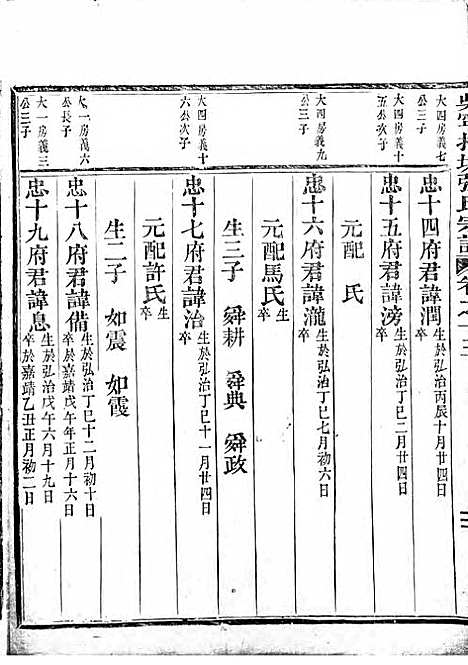 張氏宗譜 卷之十三
大四房義七
公三子
忠十四府君諱潤 生於弘治丙辰十月廿四日
卒
大四房義十
五公三子
忠十五府君諱滂 生於弘治丁巳二月廿四日
卒
元配 氏
大四房義九
公三子
忠十六府君諱瀧 生於弘治丁巳七月初六日
卒
元配馬氏 生
卒
生三子 舜耕 舜典 舜政
大四房義十
六公次子
忠十七府君諱治 生於弘治丁巳十一月廿四日
卒
元配許氏 生
卒
生二子 如震 如霞
大一房義六
公長子
忠十八府君諱備 生於弘治丁巳十二月初十日
卒於嘉靖戊午年正月十六日
大一房義三
公三子
忠十九府君諱息 生於弘治戊午六月十九日
卒於嘉靖乙丑正月初二日